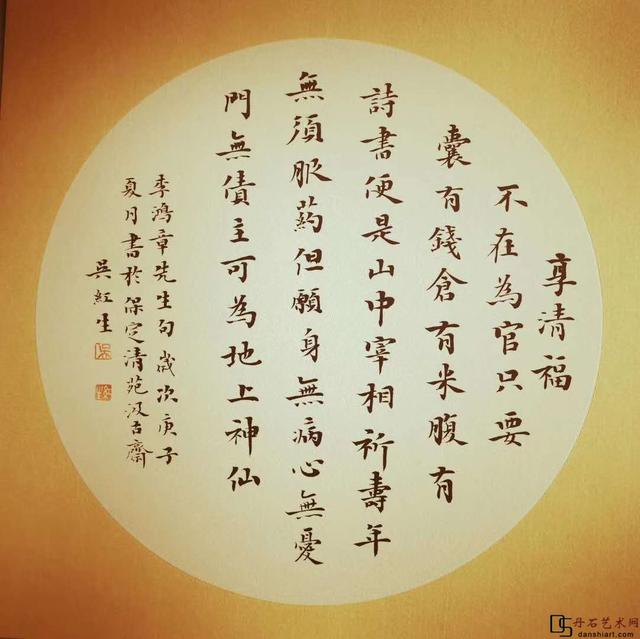 享清福
不在為官只要
囊有錢倉有米腹有
詩書便是山中宰相祈壽年
無須服药但願身無病心無憂
門無債主可為地上神仙
季鴻章先生句歲次庚子
夏月書於保定清苑汲古齋
吳紅生
丹石艺术网
danshiart.com